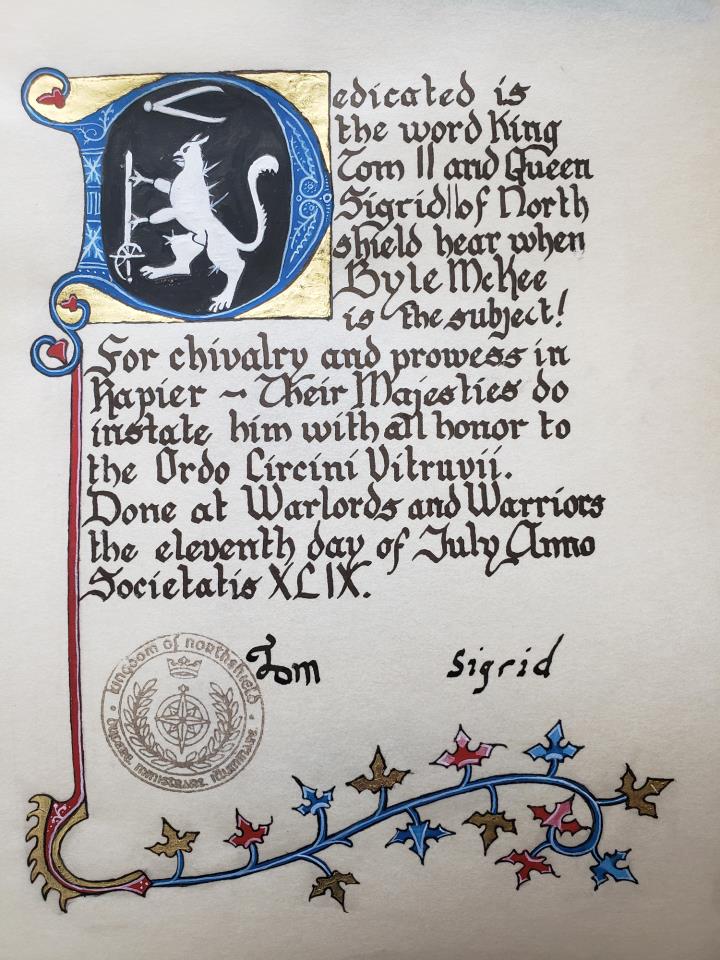 Dedicated is
the word King
Tom II and Queen
Sigrid II of North
shield hear when
Byle McKee
is the subject!
For chivalry and prowess in
Rapier ~ Their Majesties do
instate him with all honor to
the Ordo Circini Vitruvii.
Done at Warlords and Warriors
the eleventh day of July Anno
Societatis XLIX.
kingdom of northshield
Tom Sigrid